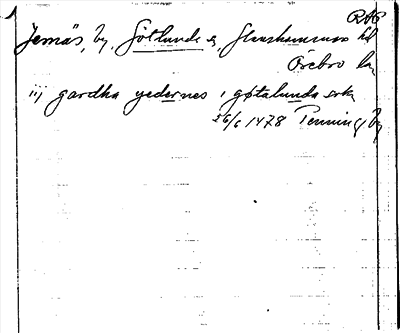 RAP
Jemäs, by, Götlunda s, Glanshammars hd
Örebro län
iij gardha yedernes i gøtalunda sokn
26/6 1478 Penning by